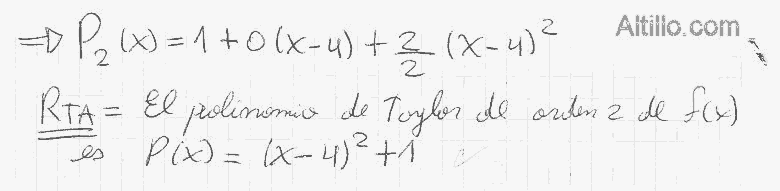 Altillo.com
⇒ P₂(x) = 1 + 0(x-4) + 2/2 (x-4)²
RTA = El polinomio de Taylor de orden 2 de f(x)
es P(x) = (x-4)² + 1